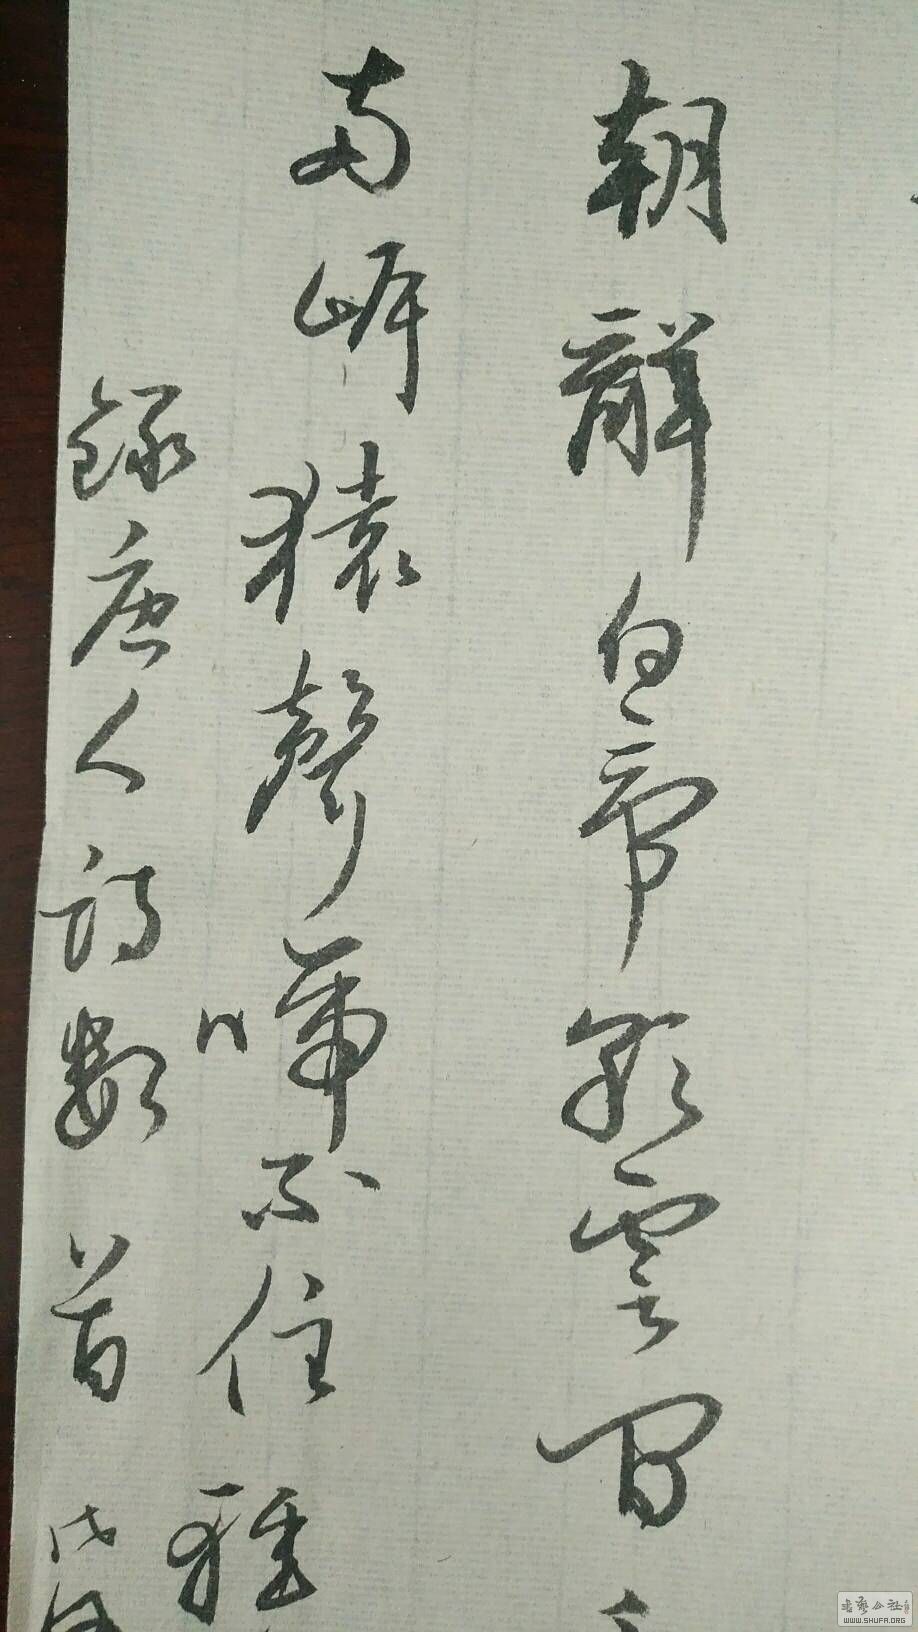 朝辭白帝彩雲間
兩岸猿聲啼不住輕
錄唐人詩數首戊
書藝公社
WWW.SHUFA.ORG